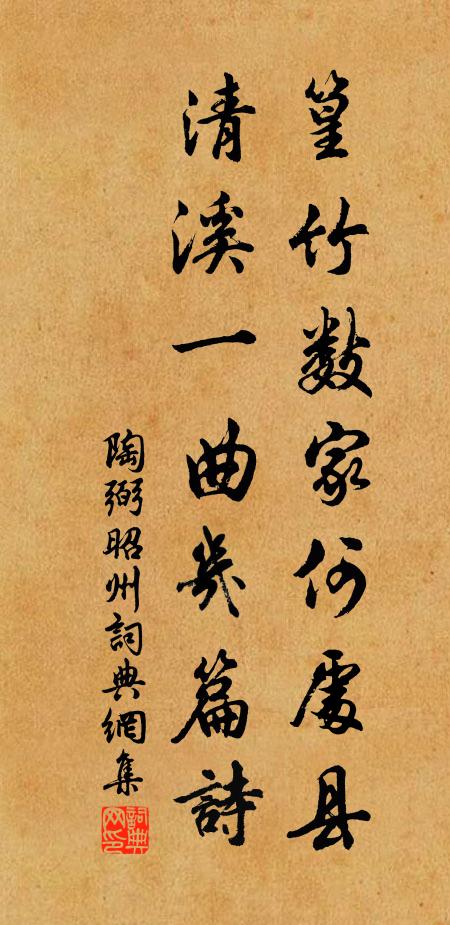 篁竹数家何處县
清溪一曲幾篇詩
陶弼昭州詞典網集
詞典網印